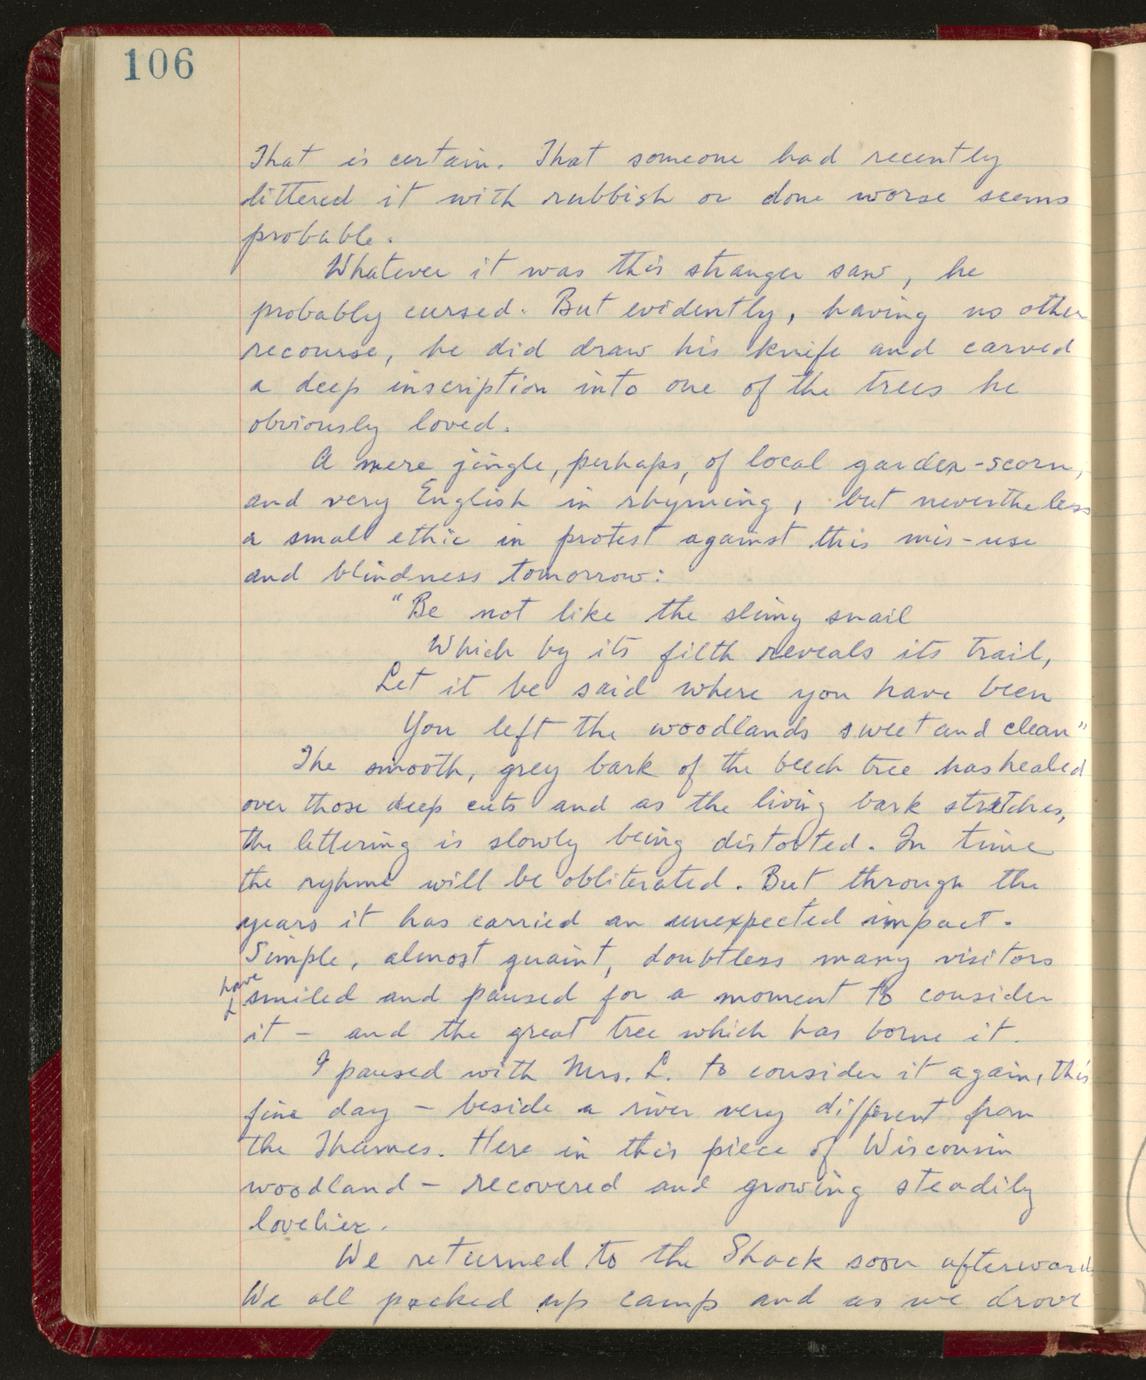 106
That is certain. That someone had recently
littered it with rubbish or done worse seems
probable.
Whatever it was this stranger saw, he
probably cursed. But evidently, having no other
recourse, he did draw his knife and carved
a deep inscription into one of the trees he
obviously loved.
A mere jingle, perhaps, of local garden-scorn,
and very English in rhyming, but nevertheless
a small ethic in protest against this mis-use
and blindness tomorrow:
"Be not like the slimy snail
Which by its filth reveals its trail,
Let it be said where you have been
You left the woodlands sweet and clean"
The smooth, grey bark of the beech tree has healed
over those deep cuts and as the living bark stretches,
the lettering is slowly being distorted. In time
the ryhme will be obliterated. But through the
years it has carried an unexpected impact.
Simple, almost quaint, doubtless many visitors
have smiled and paused for a moment to consider
it - and the great tree which has borne it.
I paused with Mrs. L. to consider it again, this
fine day - beside a river very different from
the Thames. Here in this piece of Wisconsin
woodland - recovered and growing steadily
lovelier.
We returned to the Shack soon afterward
We all packed up camp and as we drove